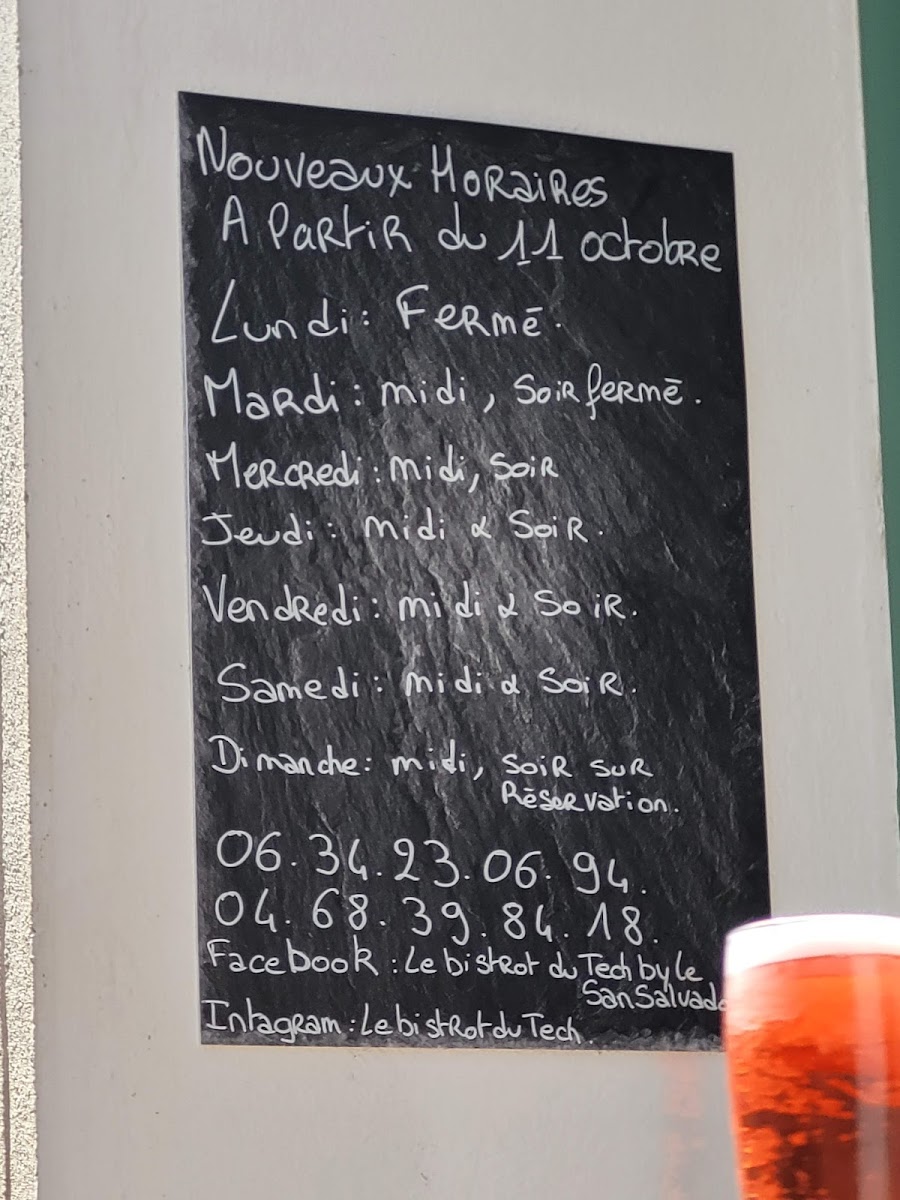 Nouveaux Horaires
A Partir du 11 octobre
Lundi : Fermē.
Mardi : midi, Soir fermē.
Mercredi : midi, Soir
Jeudi : midi & Soir.
Vendredi : midi & Soir.
Samedi : midi & Soir.
Dimanche : midi, Soir sur
Rēservation.
06. 34. 23. 06. 94.
04. 68. 39. 84. 18.
Facebook : Le bistrot du Tech by Le
San Salvado
Intagram : Le bistrot du Tech.